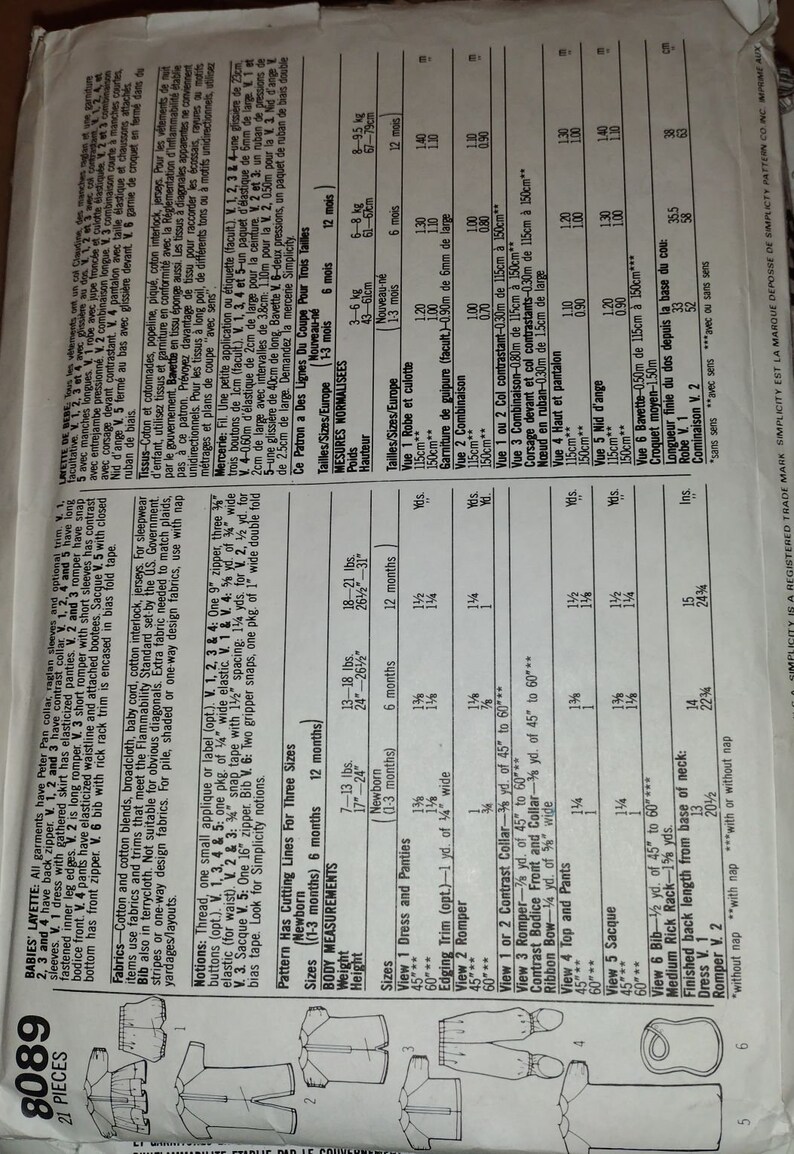 8089
21 PIECES
1
2
3
4
5
6
BABIES' LAYETTE: All garments have Peter Pan collar, raglan sleeves and optional trim. V. 1,
2, 3 and 4 have back zipper. V. 1, 2 and 3 have contrast collar. V. 1, 2, 4 and 5 have long
sleeves. V. 1 dress with gathered skirt has elasticized panties. V. 2 and 3 romper have snap
fastened inner leg edges. V. 2 is long romper. V. 3 short romper with short sleeves has contrast
bodice front. V. 4 pants have elasticized waistline and attached bootees. Sacque V. 5 with closed
bottom has front zipper. V. 6 bib with rick rack trim is encased in bias fold tape.
Fabrics—Cotton and cotton blends, broadcloth, baby cord, cotton interlock, jerseys. For sleepwear
items use fabrics and trims that meet the Flammability Standard set by the U.S. Government.
Bib also in terrycloth. Not suitable for obvious diagonals. Extra fabric needed to match plaids,
stripes or one-way design fabrics. For pile, shaded or one-way design fabrics, use with nap
yardages/layouts.
Notions: Thread, one small applique or label (opt.). V. 1, 2, 3 & 4: One 9" zipper, three 3/8"
buttons (opt.). V. 1, 3, 4 & 5: one pkg. of 1/4" wide elastic. V. 1 & V. 4: 5/8 yd. of 3/4" wide
elastic (for waist). V. 2 & 3: 3/4" snap tape with 1 1/2" spacing: 1 1/4 yds. for V. 2, 1/2 yd. for
V. 3. Sacque V. 5: One 16" zipper. Bib V. 6: Two gripper snaps, one pkg. of 1" wide double fold
bias tape. Look for Simplicity notions.
Pattern Has Cutting Lines For Three Sizes
Sizes (Newborn (1-3 months) 6 months 12 months)
BODY MEASUREMENTS
Weight 7—13 lbs. 13—18 lbs. 18—21 lbs.
Height 17"—24" 24"—26½" 26½"—31"
Sizes (Newborn (1-3 months) 6 months 12 months)
View 1 Dress and Panties
45"*** 1⅜ 1⅜ 1½ Yds.
60"*** 1⅛ 1⅛ 1¼ "
Edging Trim (opt.)—1 yd. of ¼" wide
View 2 Romper
45"*** 1 1⅛ 1¼ Yds.
60"*** ¾ ⅞ 1 Yd.
View 1 or 2 Contrast Collar—⅜ yd. of 45" to 60"**
View 3 Romper—⅞ yd. of 45" to 60"**
Contrast Bodice Front and Collar—⅜ yd. of 45" to 60"**
Ribbon Bow—¼ yd. of ⅝" wide
View 4 Top and Pants
45"*** 1¼ 1⅜ 1½ Yds.
60"*** 1 1 1⅛ "
View 5 Sacque
45"*** 1¼ 1⅜ 1½ Yds.
60"*** 1 1⅛ 1¼ "
View 6 Bib—½ yd. of 45" to 60"***
Medium Rick Rack—1⅝ yds.
Finished back length from base of neck:
Dress V. 1 13 14 15 Ins.
Romper V. 2 20½ 22¾ 24¾ "
*without nap **with nap ***with or without nap
LAYETTE DE BEBE: Tous les vêtements ont un col Claudine, des manches raglan et une garniture
facultative. V. 1, 2, 3 et 4 avec glissière au dos. V. 1, 2 et 3 avec col contrastant. V. 1, 2, 4, et
5 avec manches longues. V. 1 robe avec jupe froncée et culotte élastiquée. V. 2 et 3 combinaison
avec entrejambe pressionné. V. 2 combinaison longue. V. 3 combinaison courte à manches courtes,
avec corsage devant contrastant. V. 4 pantalon avec taille élastique et chaussons attachés.
Nid d'ange V. 5 fermé au bas avec glissière devant. V. 6 garnie de croquet en fermé dans du
ruban de biais.
Tissus—Coton et cotonnades, popeline, piqué, coton interlock, jerseys. Pour les vêtements de nuit
d'enfant, utilisez tissus et garniture en conformité avec la Réglementation d'Inflammabilité établie
par le gouvernement. Bavette en tissu éponge aussi. Les tissus à diagonales apparentes ne conviennent
pas à ce patron. Prévoyez davantage de tissu pour raccorder les écossais, rayures ou motifs
unidirectionnels. Pour les tissus à long poil, de différents tons ou à motifs unidirectionnels, utilisez
métrages et plans de coupe "avec sens".
Mercerie: Fil. Une petite application ou étiquette (facult.). V. 1, 2, 3 & 4—une glissière de 23cm,
trois boutons de 1cm (facult.). V. 1, 3, 4 et 5—un paquet d'élastique de 6mm de large. V. 1 et
V. 4—0.60m d'élastique de 2cm de large pour la ceinture. V. 2 et 3: un ruban de pressions de
2cm de large avec intervalles de 3.8cm: 1.10m pour la V. 2, 0.50m pour la V. 3. Nid d'ange V.
5—une glissière de 40cm de long. Bavette V. 6—deux pressions, un paquet de ruban de biais double
de 2.5cm de large. Demandez la mercerie Simplicity.
Ce Patron a Des Lignes Du Coupe Pour Trois Tailles
Tailles/Sizes/Europe (Nouveau-né 1-3 mois 6 mois 12 mois)
MESURES NORMALISEES
Poids 3—6 kg 6—8 kg 8—9.5 kg
Hauteur 43—61cm 61—67cm 67—79cm
Tailles/Sizes/Europe (Nouveau-né 1-3 mois 6 mois 12 mois)
Vue 1 Robe et culotte
115cm** 1.20 1.30 1.40 m
150cm** 1.00 1.10 1.10 "
Garniture de guipure (facult.)—0.90m de 6mm de large
Vue 2 Combinaison
115cm** 1.00 1.00 1.10 m
150cm** 0.70 0.80 0.90 "
Vue 1 ou 2 Col contrastant—0.30m de 115cm à 150cm**
Vue 3 Combinaison—0.80m de 115cm à 150cm**
Corsage devant et col contrastants—0.30m de 115cm à 150cm**
Nœud en ruban—0.30m de 1.5cm de large
Vue 4 Haut et pantalon
115cm** 1.10 1.20 1.30 m
150cm** 0.90 1.00 1.00 "
Vue 5 Nid d'ange
115cm** 1.20 1.30 1.40 m
150cm** 0.90 1.00 1.10 "
Vue 6 Bavette—0.50m de 115cm à 150cm***
Croquet moyen—1.50m
Longueur finie du dos depuis la base du cou:
Robe V. 1 33 35.5 38 cm
Cominaison V. 2 52 58 63 "
*sans sens **avec sens ***avec ou sans sens
SIMPLICITY IS A REGISTERED TRADE MARK SIMPLICITY EST LA MARQUE DEPOSSE DE SIMPLICTY PATTERN CO. INC. IMPRIME AUX